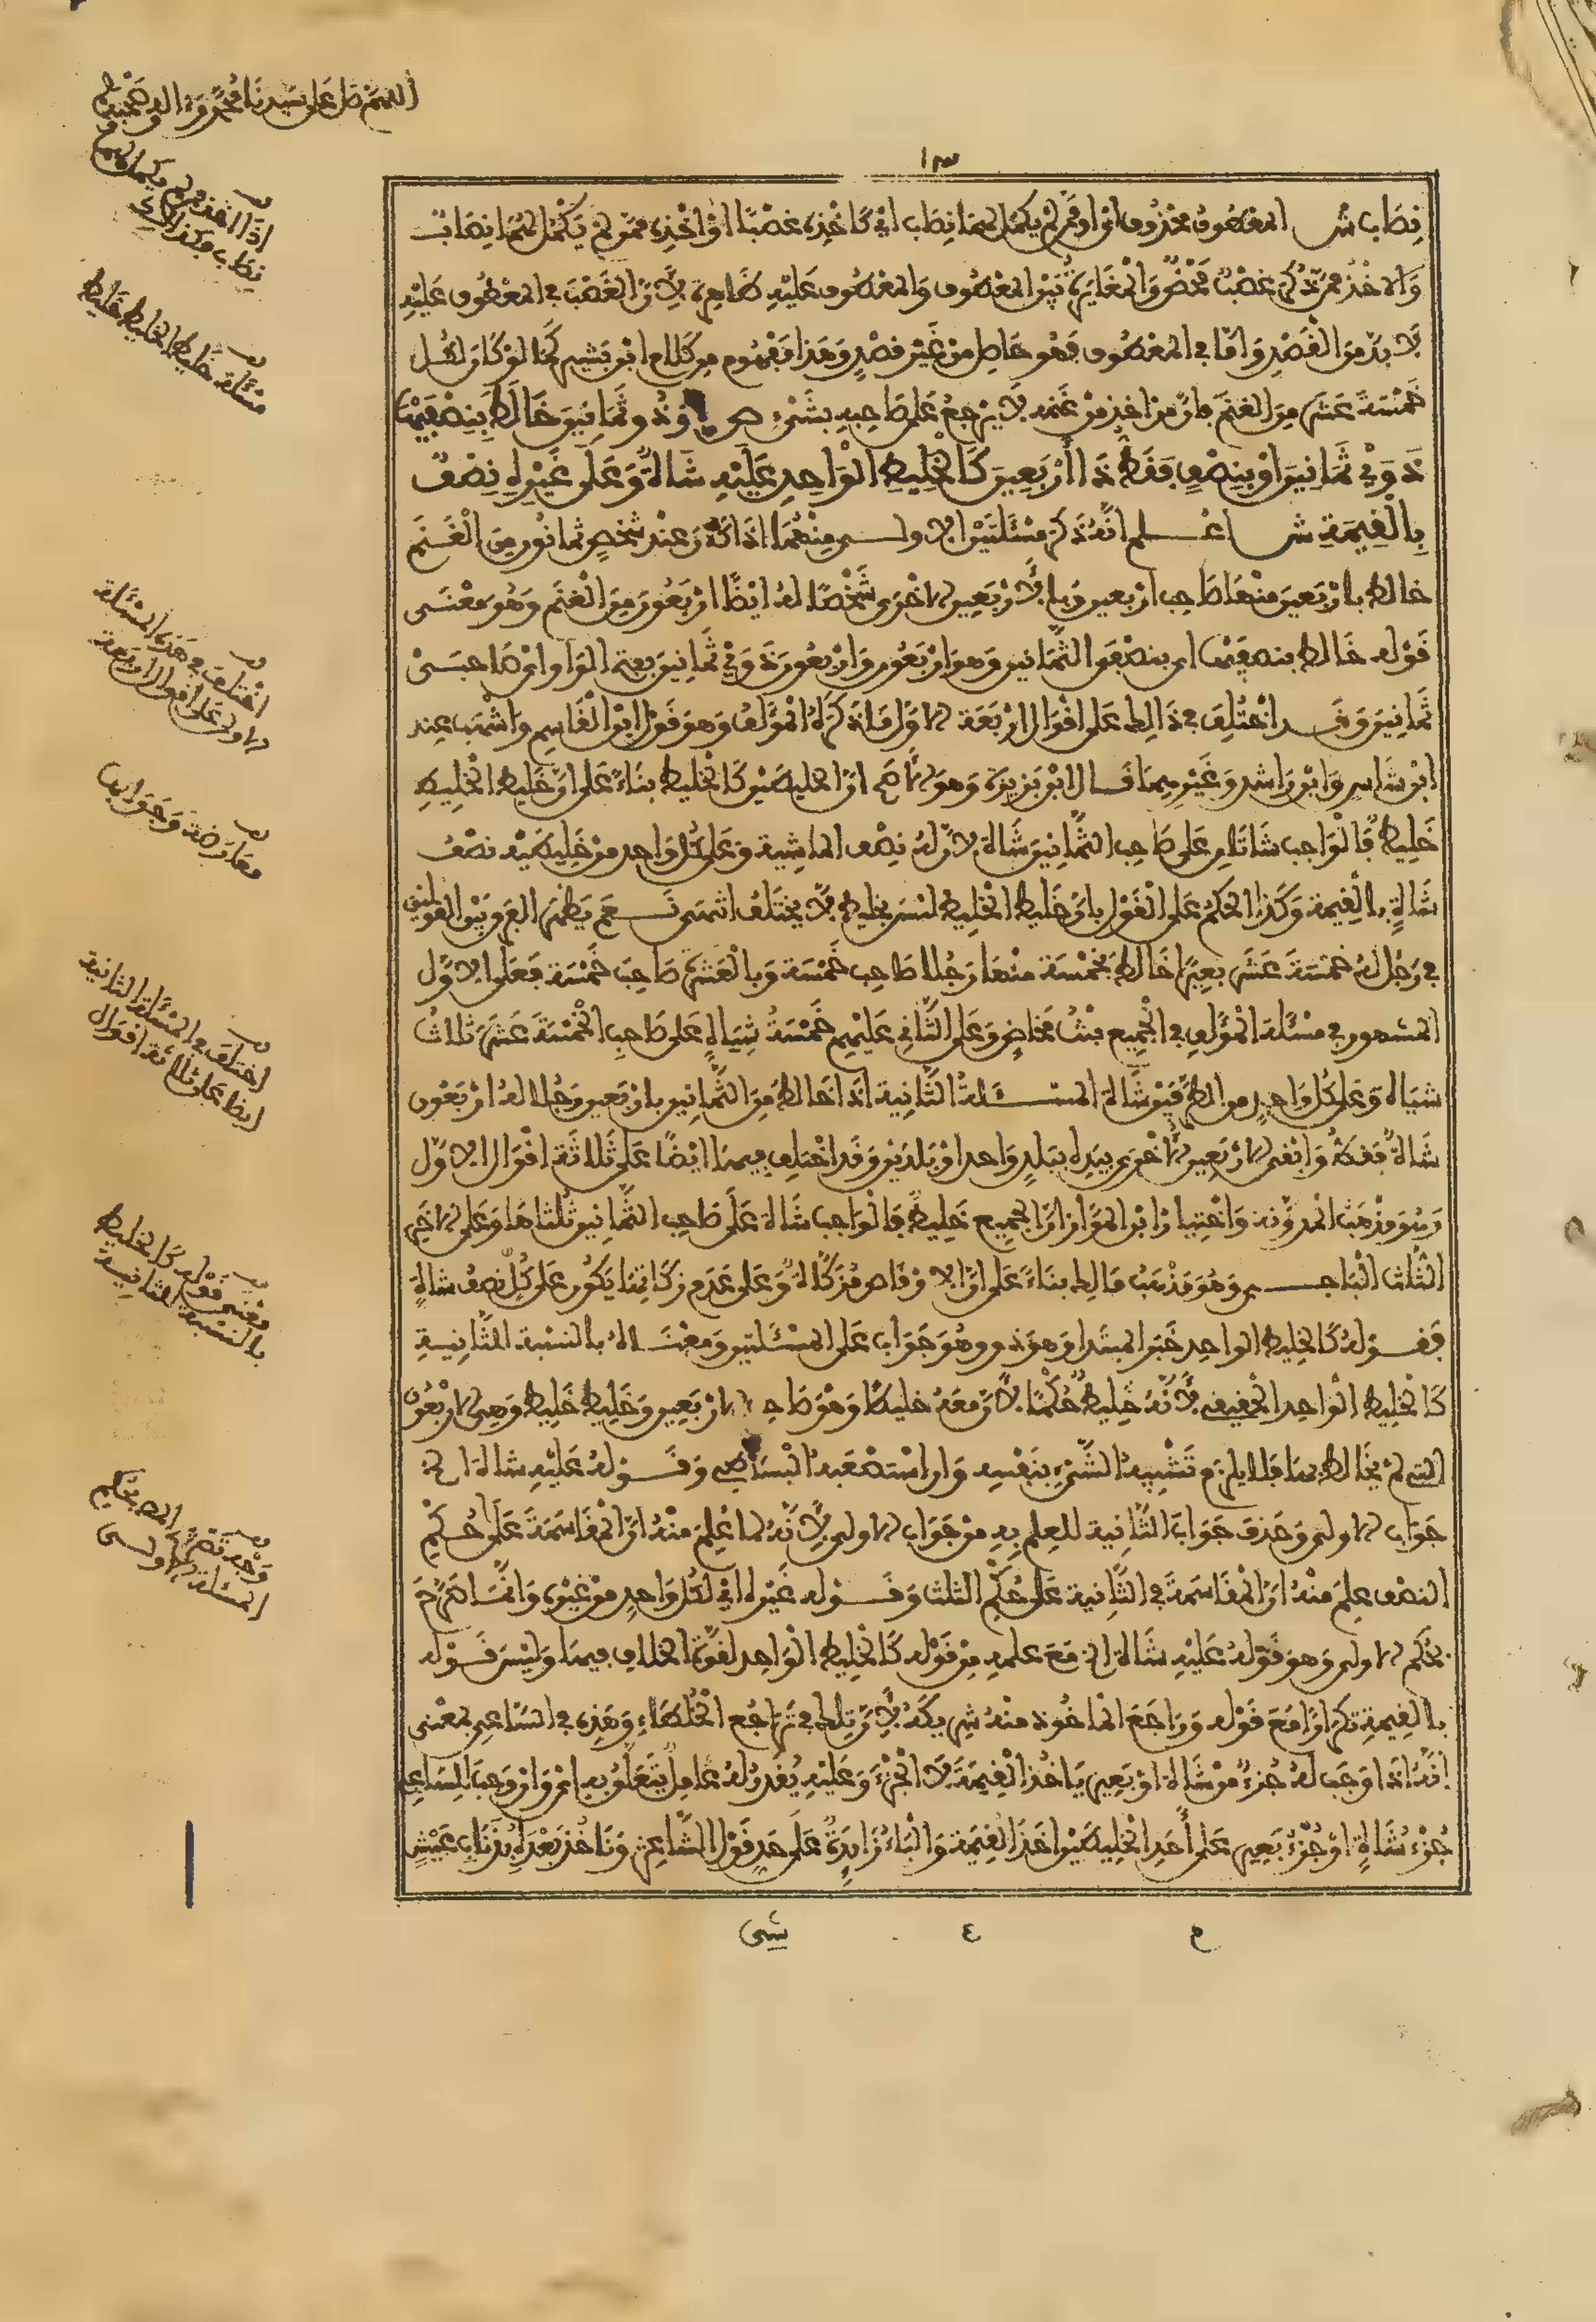 اللهم صل على سيدنا محمد وءاله وصحبه
١٣
نصاب ش المعطوف محذوف اي او ممن لم يكمل لهما نصاب اي كاخذه غصبا او اخذه ممن لم يكمل لهما نصاب
والاخذ ممن ذكر غصب محض والمغايرة بين المعطوف والمعطوف عليه ظاهرة لان الغصب في المعطوف عليه
لا بد من القصد واما في المعطوف فهو حاصل من غير قصد وهذا مفهوم من كلام ابن بشير كما لو كان لكل
خمسة عشر من الغنم فان من اخذ من غنمه لا يرجع على صاحبه بشيء ص وذو ثمانين خالط بنصفيها
ذوي ثمانين او بنصف فقط ذا اربعين كالخليط الواحد عليه شاة وعلى غيره نصف
بالقيمة ش اعلم انه ذكر مسئلتين الاولى منهما اذا كان عند شخص ثمانون من الغنم
خالط باربعين منها صاحب اربعين وبالاربعين الاخرى شخصا له ايضا اربعون من الغنم وهو معنى
قوله خالط بنصفيها اي بنصفي الثمانين وهو اربعون واربعون ذوي ثمانين بفتح الواو اي صاحبي
ثمانين وقد اختلف في ذالك على اقوال اربعة الاول ما ذكره المؤلف وهو قول ابن القاسم واشهب عند
ابن شاس وابن راشد وغيرهما قال ابن بزيزة وهو الاصح ان الخليطين كالخليط بناء على ان خليط الخليط
خليط فالواجب شاتان على صاحب الثمانين شاة لان له نصف الماشية وعلى كل واحد من خليطيه نصف
شاة بالقيمة وكذا الحكم على القول بان خليط الخليط ليس بخليط لا يختلف انتهى نعم يظهر الفرق بين القولين
في رجل له خمسة عشر بعيرا خالط بخمسة منها رجلا صاحب خمسة وبالعشرة صاحب خمسة فعلى الاول
المشهور في مسئلة المؤلف في الجميع بنت مخاض وعلى الثاني عليهم خمسة شياه على صاحب الخمسة عشر ثلاث
شياه وعلى كل واحد من الطرفين شاة المسئلة الثانية اذا خالط من الثمانين باربعين رجلا له اربعون
شاة فقط وابقى الاربعين الاخرى بيده ببلد واحد او بلدين وقد اختلف فيها ايضا على ثلاثة اقوال الاول
وهو مذهب المدونة واختيار ابن المواز ان الجميع خليط فالواجب شاة على صاحب الثمانين ثلثاها وعلى الاخر
الثلث الباجي وهو مذهب مالك بناء على ان الاوقاص مزكاة وعلى عدم زكاتها يكون على كل نصف شاة
فقوله كالخليط الواحد خبر المبتدا وهو ذو وهو جواب على المسئلتين ومعناه بالنسبة الثانية
كالخليط الواحد الحقيقي لانه خليط حكما لان معه خليطا وهو صاحب الاربعين وخليط خليط وهي الاربعون
التي لم يخالط بها فلا يلزم تشبيه الشيء بنفسه وان استصعبه البساطي وقوله عليه شاة الخ
جواب الاولى وحذف جواب الثانية للعلم به من جواب الاولى لانه لما علم منه ان المقاسمة على حكم
النصف علم منه ان المقاسمة في الثانية على حكم الثلث وقوله غيره اي لكل واحد من غيره وانما صرح
بحكم الاولى وهو قوله عليه شاة الخ مع علمه من قوله كالخليط الواحد لقوة الخلاف فيها وليس قوله
بالقيمة تكرارا مع قوله وراجع الماخوذ منه شريكه لان تلك في تراجع الخلطاء وهذه في الساعي بمعنى
انه اذا وجب له جزء من شاة او بعير ياخذ القيمة لا الجزء وعليه يقدر له عامل يتعلق به اي وان وجب للساعي
جزء شاة او جزء بعير على احد الخليطين اخذ القيمة والباء زايدة على حد قول الشاعر وناخذ بعده بذناب عيش
قف اذا اخذ من لم يكمل لهم نصاب
قف مسئلة خليط الخليط خليط
قف اختلف في هذه المسئلة الاولى على اقوال اربعة
قف معارضة وجوابها
قف اختلف في المسئلة الثانية ايضا على ثلاثة اقوال
قف معنى قوله كالخليط بالنسبة للثانية
قف وجه تصريح المص بحكم المسئلة الاولى
م ٤ شي